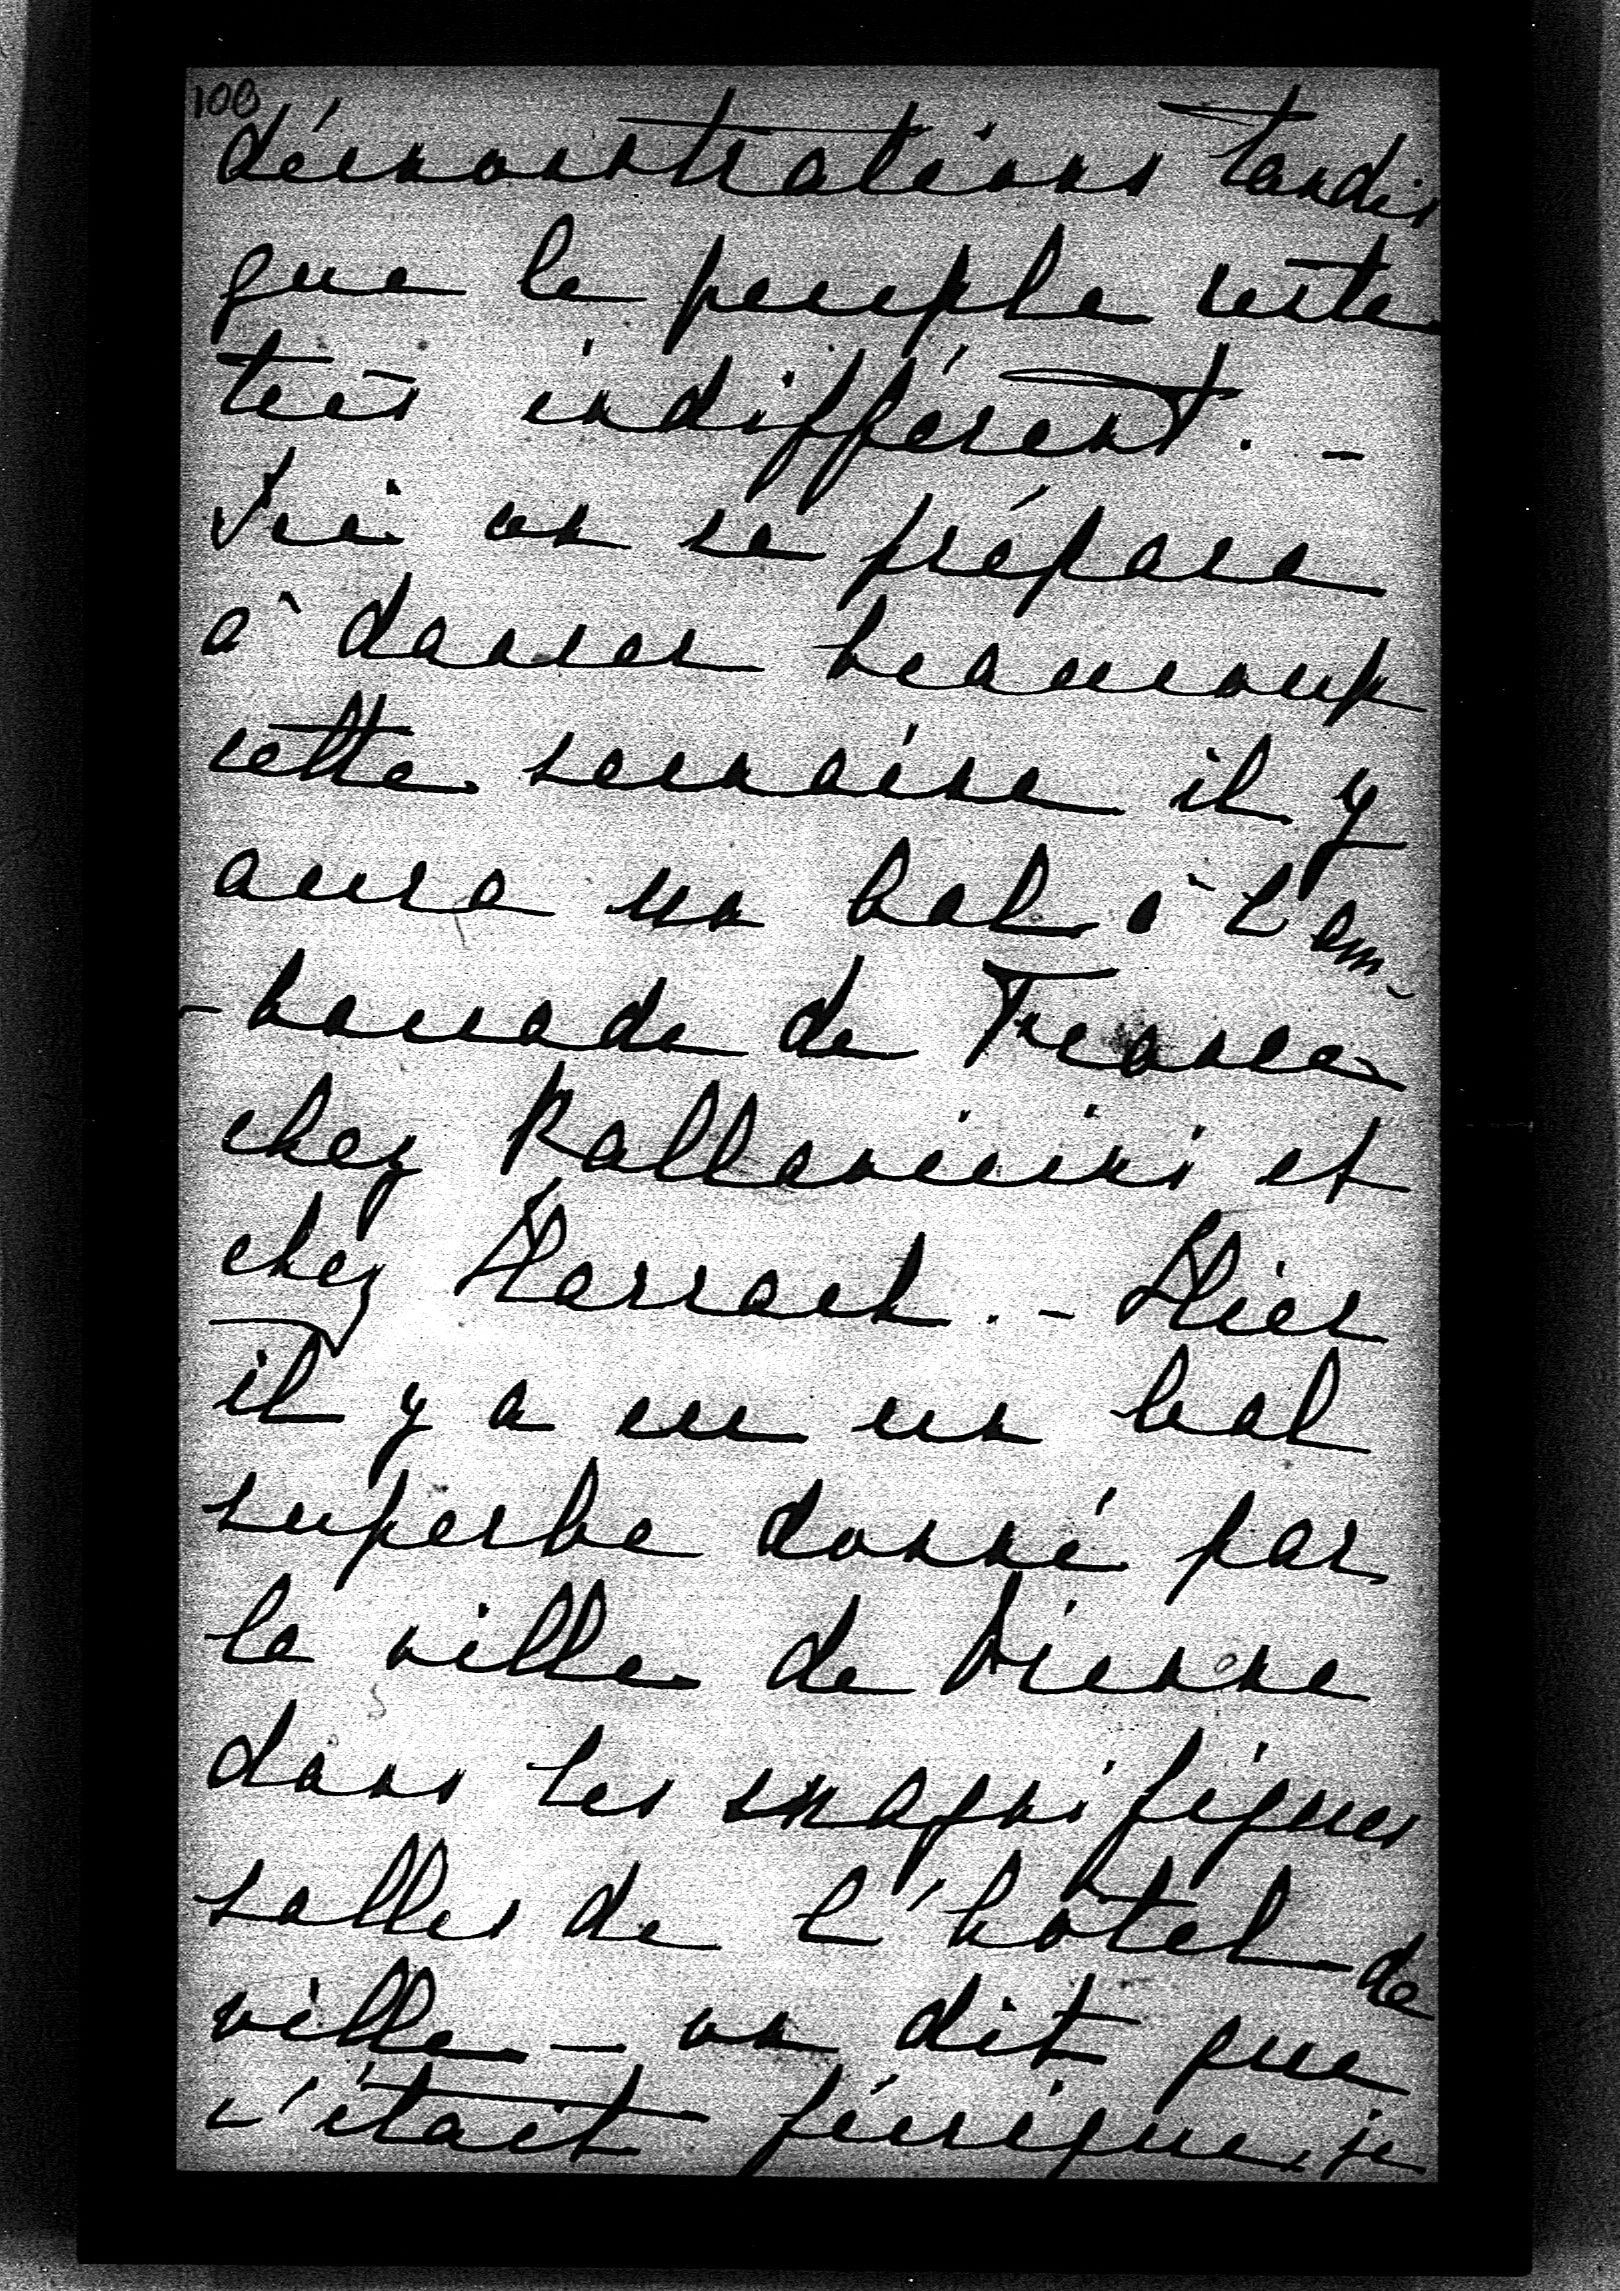 100
démonstrations tandis
que le peuple reste
très indifférent. –
Ici on se prépare
à danser beaucoup
cette semaine il y
aura un bal à l'am-
-bassade de France
chez Pallavicini et
chez Harrach. – Hier
il y a eu un bal
superbe donné par
la ville de Vienne
dans les magnifiques
salles de l'hôtel de
ville – on dit que
c'était féerique, je